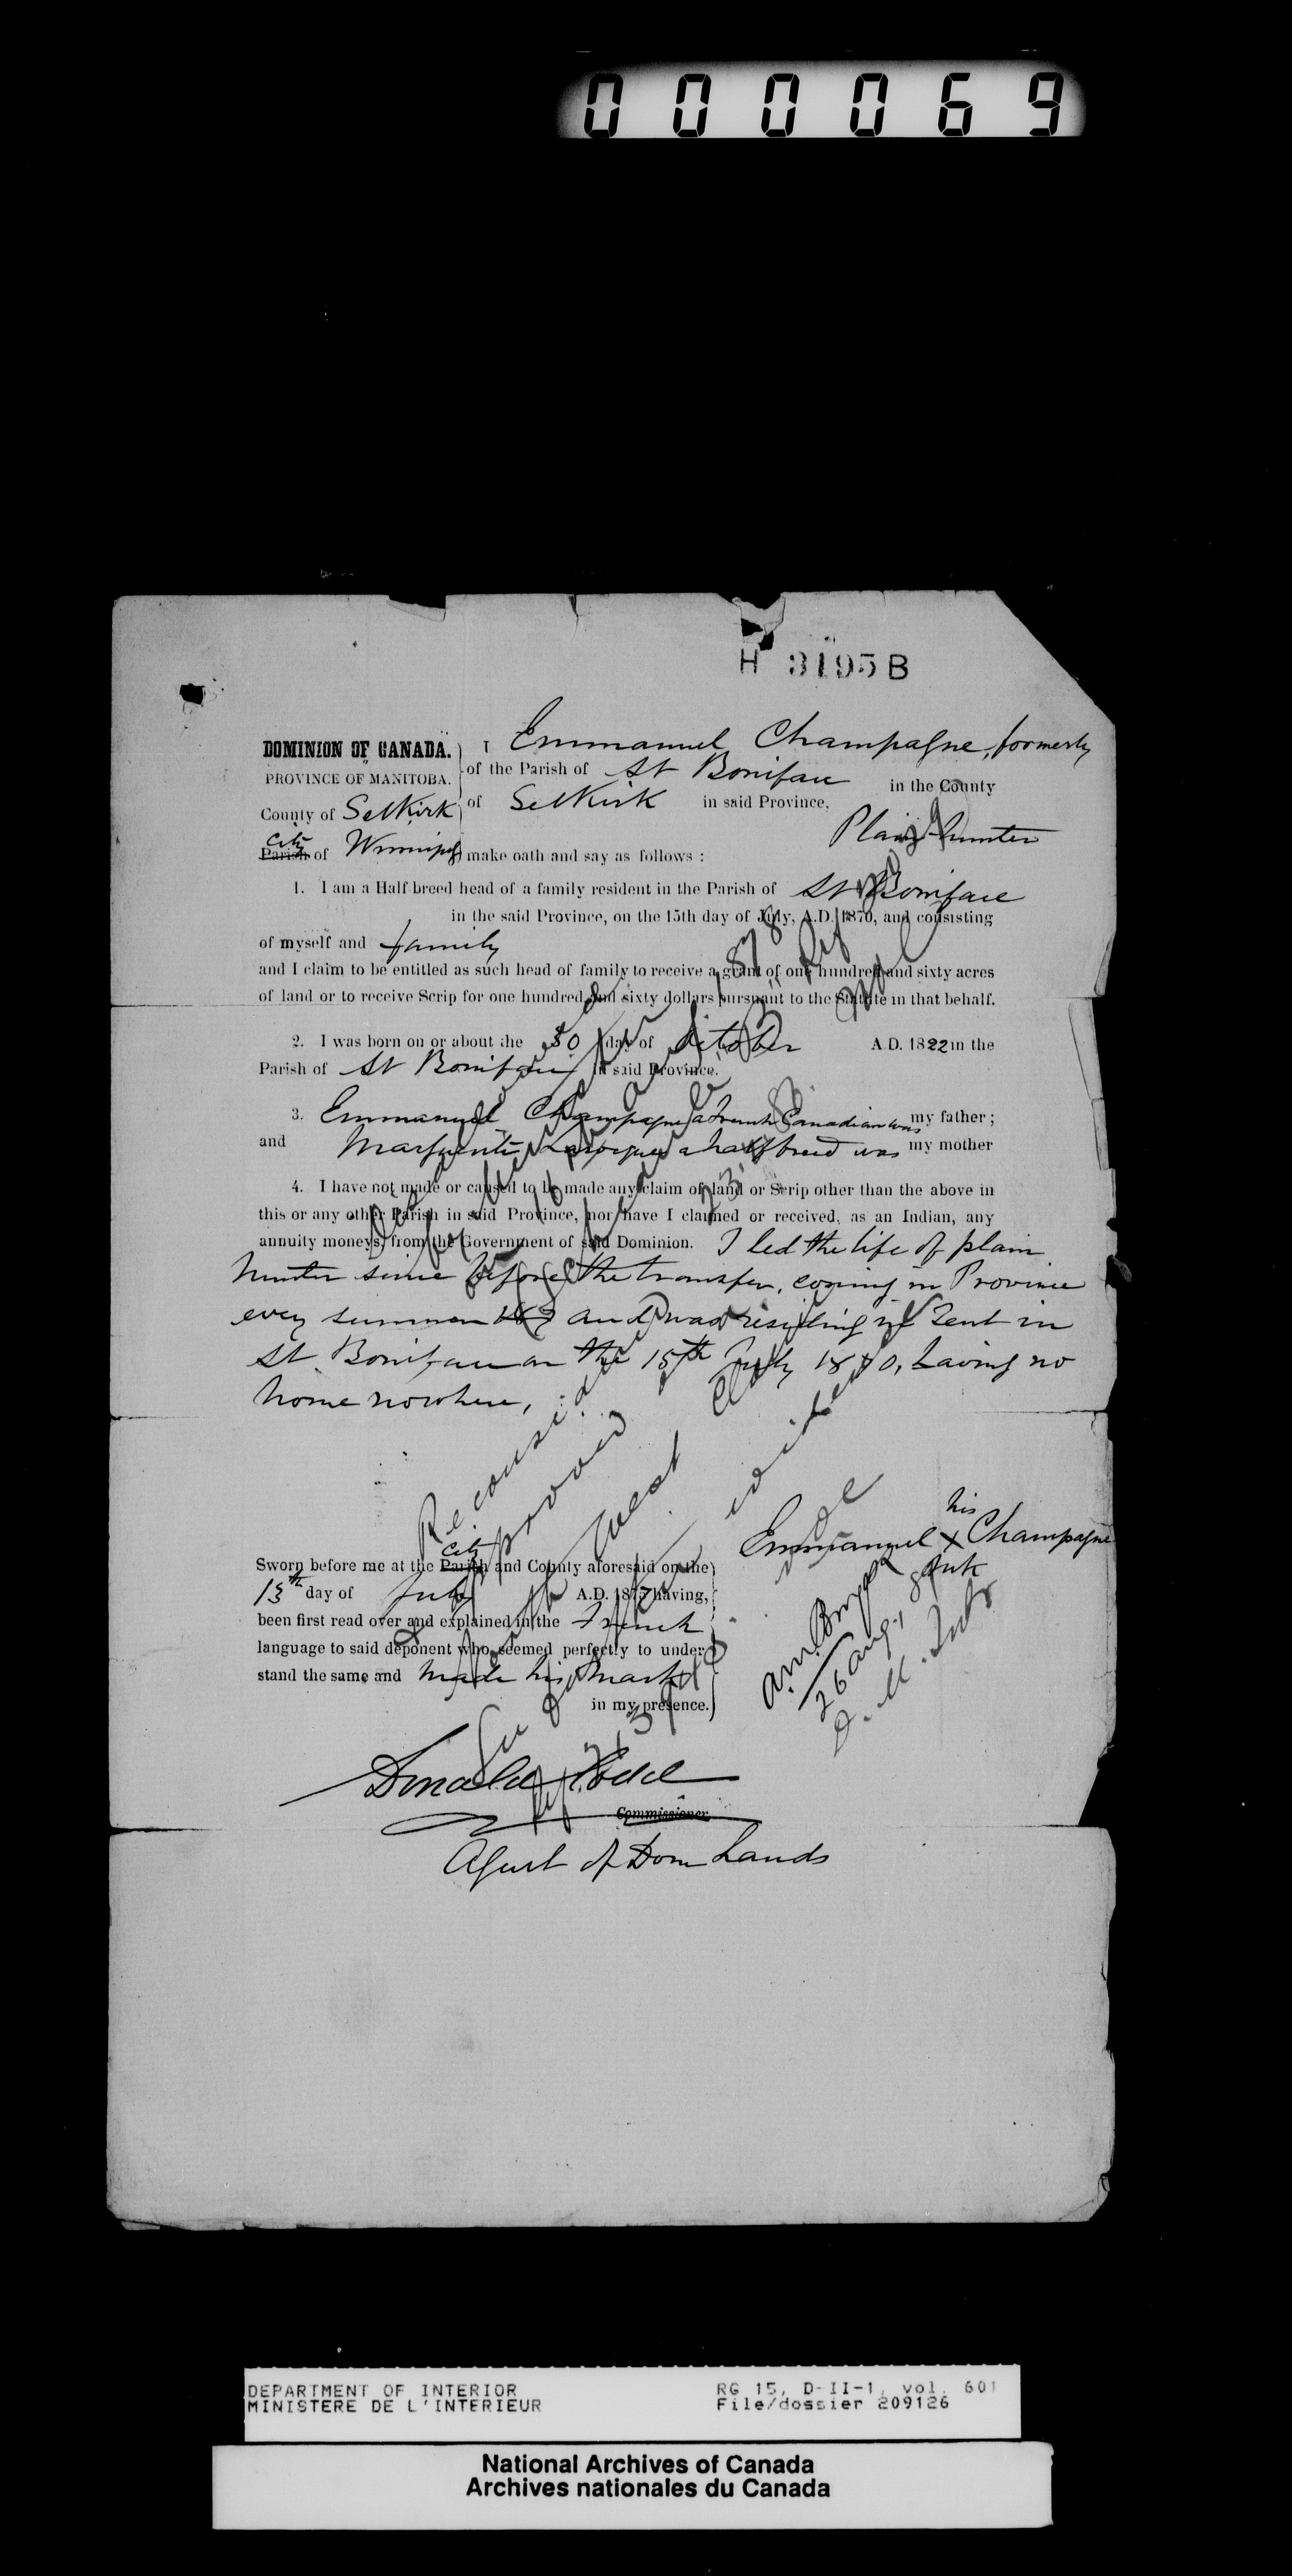 000069
H 3195 B
DOMINION OF CANADA.
PROVINCE OF MANITOBA.
County of Selkirk
City
Parish of Winnipeg
I Emmanuel Champagne, formerly
of the Parish of St Boniface in the County
of Selkirk in said Province,
Plain hunter
make oath and say as follows :
1. I am a Half-breed head of a family resident in the Parish of St Boniface
in the said Province, on the 15th day of July, A.D. 1870, and consisting
of myself and family
and I claim to be entitled as such head of family to receive a grant of one hundred and sixty acres
of land or to receive Scrip for one hundred and sixty dollars pursuant to the Statute in that behalf.
2. I was born on or about the 30 day of October A.D. 1822 in the
Parish of St Boniface in said Province.
3. Emmanuel Champagne a French Canadian was my father ;
and Marguerite Larocque a half breed was my mother
4. I have not made or caused to be made any claim of land or Scrip other than the above in
this or any other Parish in said Province, nor have I claimed or received, as an Indian, any
annuity moneys from the Government of said Dominion. I led the life of plain
hunter since before the transfer, coming in Province
every summer and was residing in Tent in
St Boniface on the 15th July 1870, having no
home nowhere,
his
Emmanuel X Champagne
City
Sworn before me at the Parish and County aforesaid on the
13th day of July A.D. 1877 having,
been first read over and explained in the French
language to said deponent who seemed perfectly to under-
stand the same and made his mark
in my presence.
Donald Codd
Commissioner
Agent of Dom Lands
Reconsidered
approved
26 Aug.,
DEPARTMENT OF INTERIOR
MINISTERE DE L'INTERIEUR
RG 15, D-II-1, vol. 601
File/dossier 209126
National Archives of Canada
Archives nationales du Canada